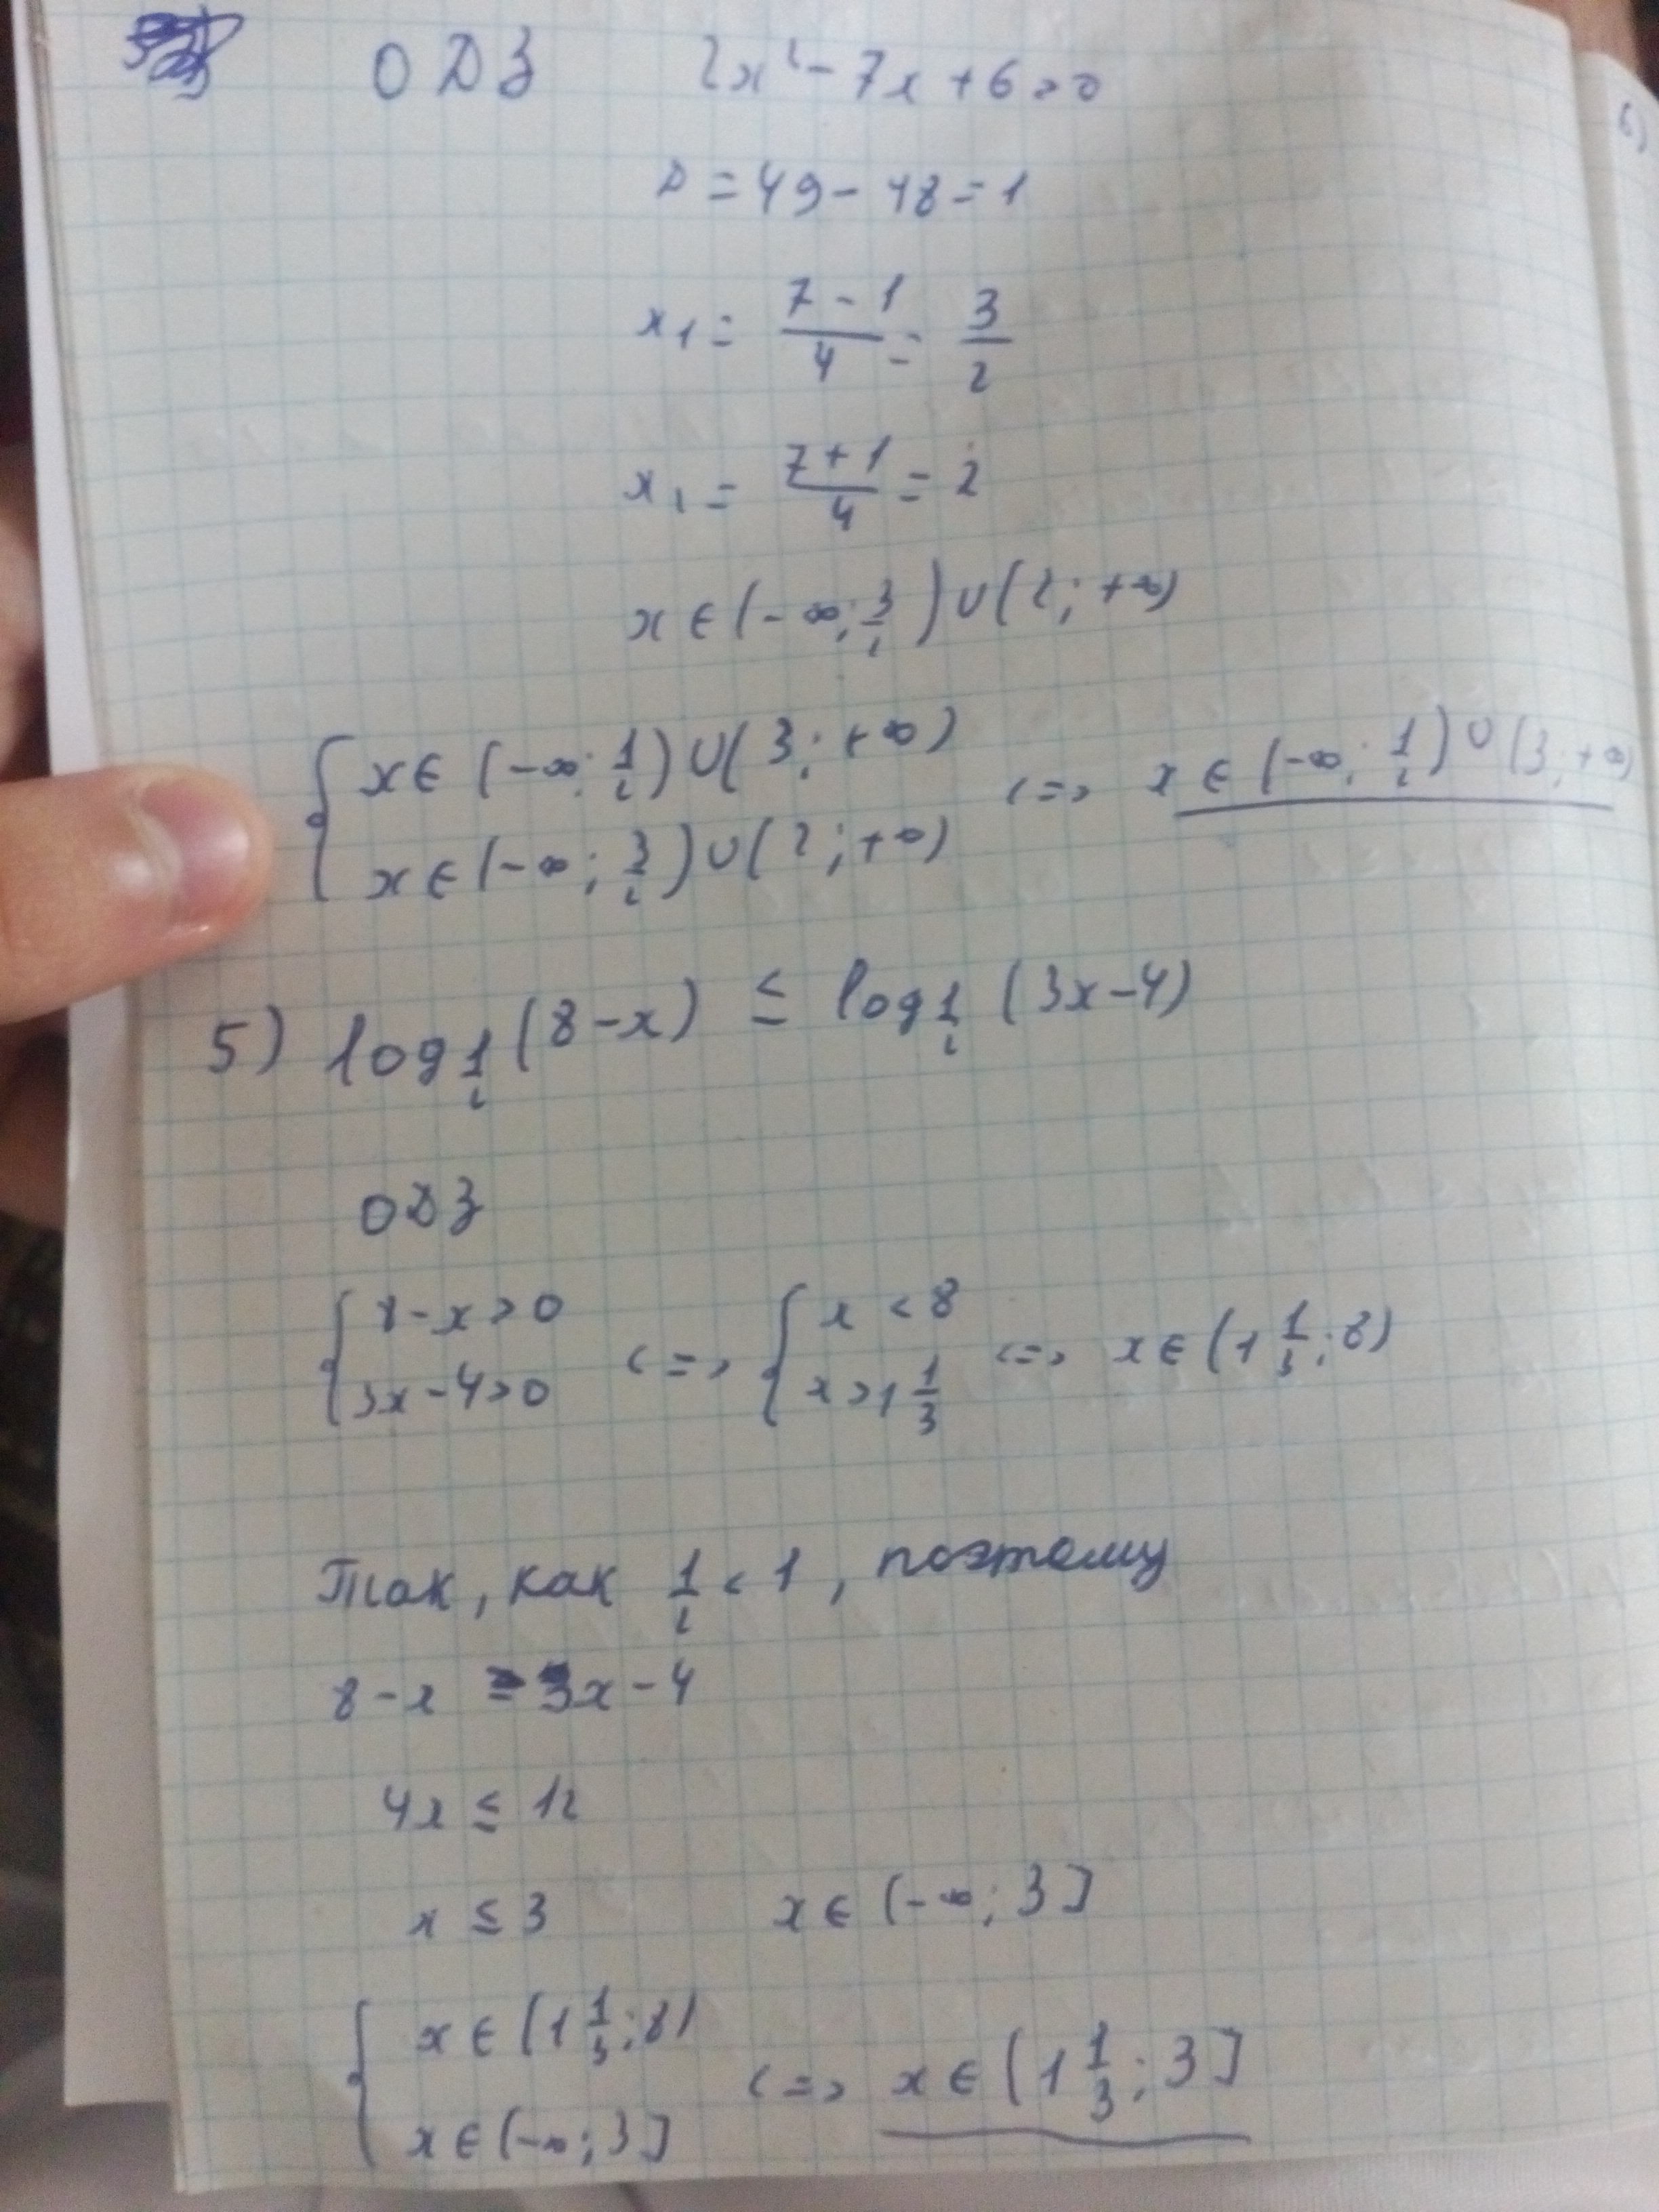 ОДЗ 2x² - 7x + 6 > 0
D = 49 - 48 = 1
x₁ = (7 - 1)/4 = 3/2
x₁ = (7 + 1)/4 = 2
x ∈ (-∞; 3/2) ∪ (2; +∞)
{ x ∈ (-∞; 1/2) ∪ (3; +∞)
{ x ∈ (-∞; 3/2) ∪ (2; +∞) <=> x ∈ (-∞; 1/2) ∪ (3; +∞)
5) log_{1/2} (8 - x) ≤ log_{1/2} (3x - 4)
ОДЗ
{ 8 - x > 0 <=> { x < 8 <=> x ∈ (1 1/3; 8)
{ 3x - 4 > 0 { x > 1 1/3
Так, как 1/2 < 1, поэтому
8 - x ≥ 3x - 4
4x ≤ 12
x ≤ 3 x ∈ (-∞; 3]
{ x ∈ (1 1/3; 8)
{ x ∈ (-∞; 3] <=> x ∈ (1 1/3; 3]
6)